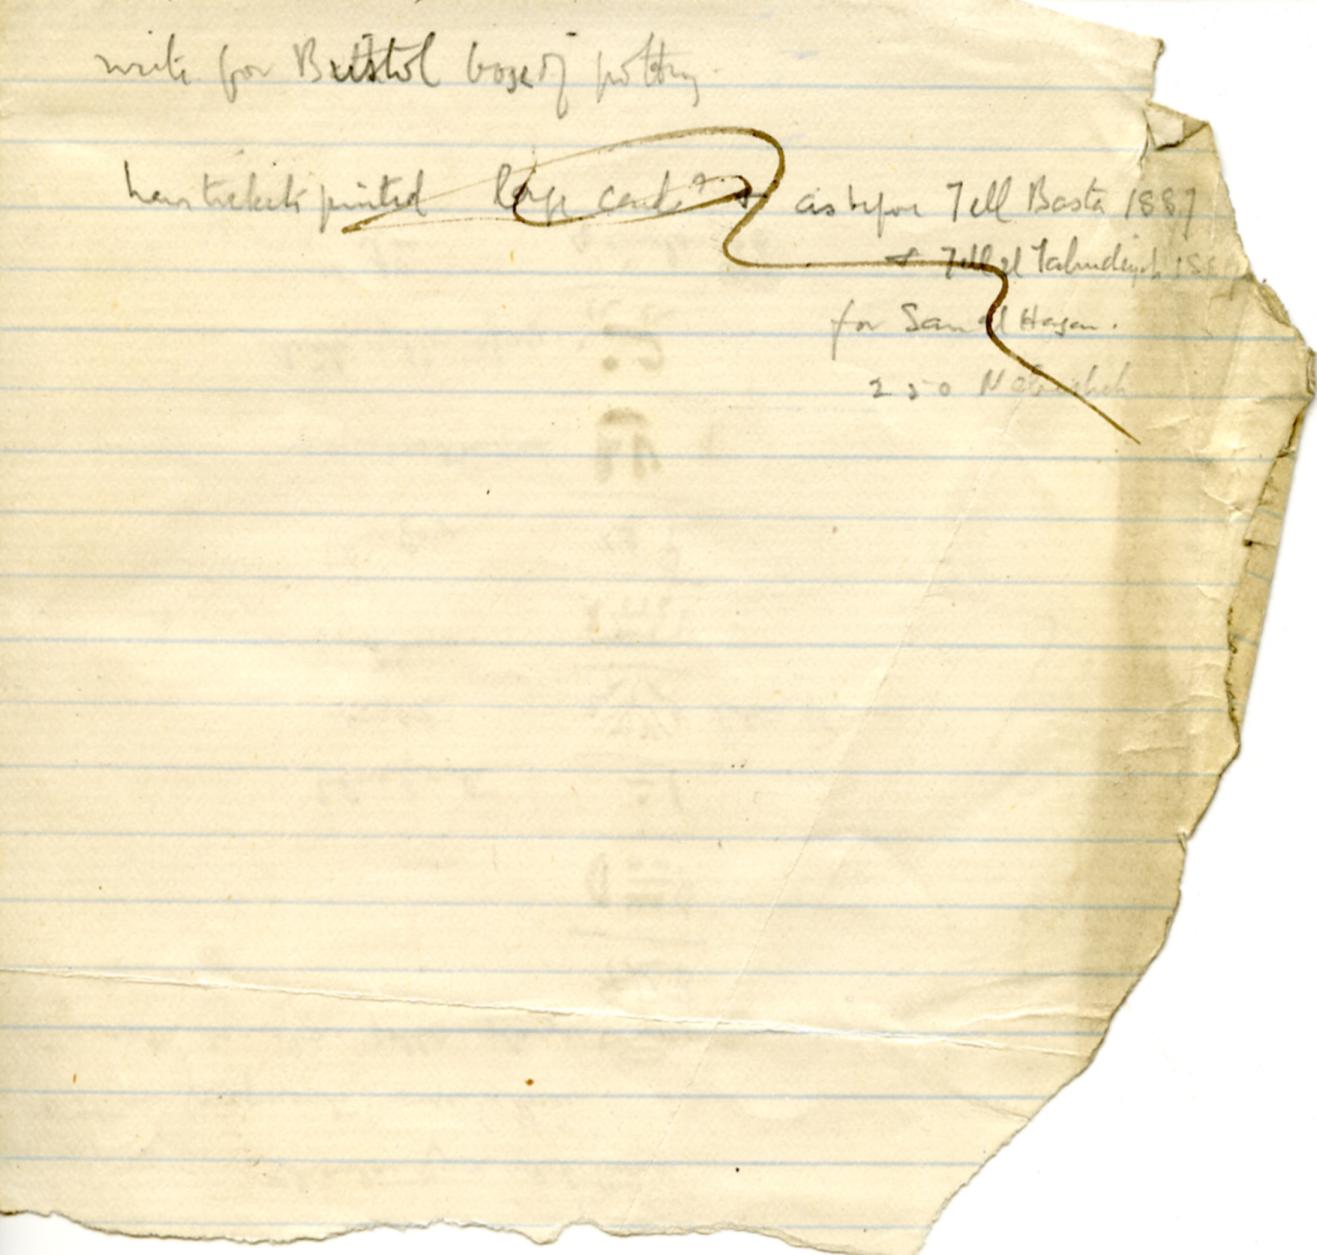 write for Bristol box of pottery
have tickets printed large cards & as before Tell Basta 1887
& Tell el Yahudiyeh 188
for San el Hagar.
250 Nebesheh